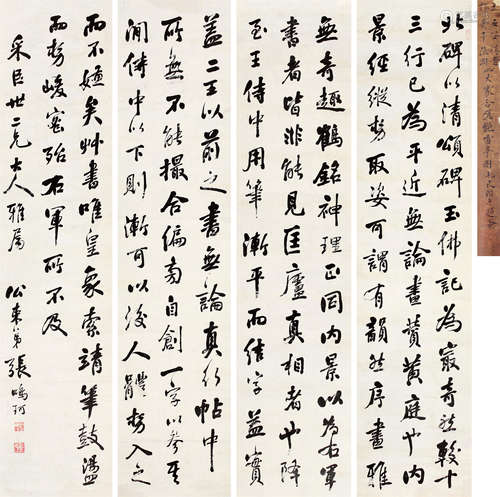 北碑以清頌碑玉佛記為最奇然較十
三行已為平近無論畫贊黃庭也內
景經縱勢取姿可謂有韻然序畫雖
無奇趣鶴銘神理正同內景以為右軍
書者皆非能見匡廬真相者也降
至王侍中用筆漸平而結字益實
蓋二王以前之書無論真行帖中
所無不能撮合偏旁自創一字以參其
間侍中以下則漸可以後人體勢入之
而不嫌矣艸書唯皇象索靖筆鼓盪
而勢峻密殆右軍所不及
采臣世二兄大人雅屬
公束弟張鳴珂